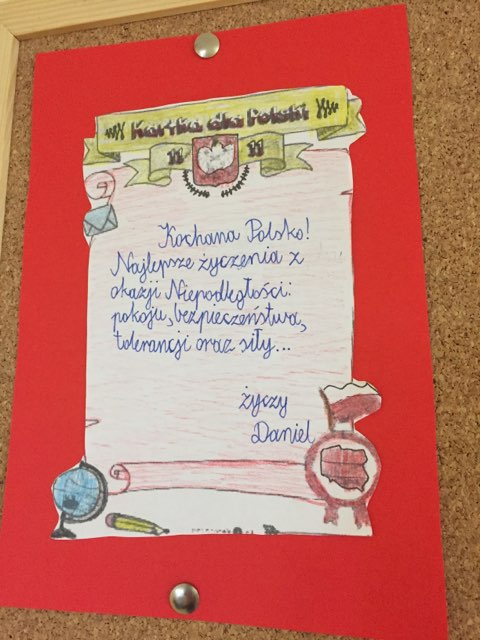 Kartka dla Polski
11 11
Kochana Polsko!
Najlepsze życzenia z
okazji Niepodległości:
pokoju, bezpieczeństwa,
tolerancji oraz siły...
życzy
Daniel